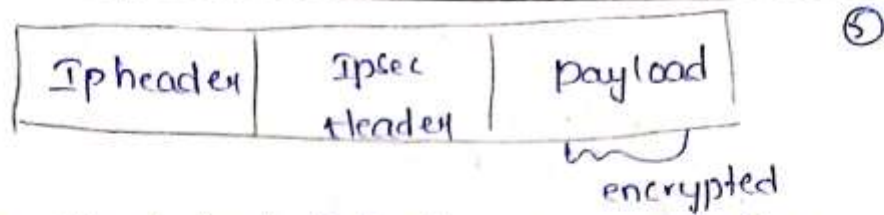 ⑤
Ipheader
Ipsec
Header
payload
encrypted